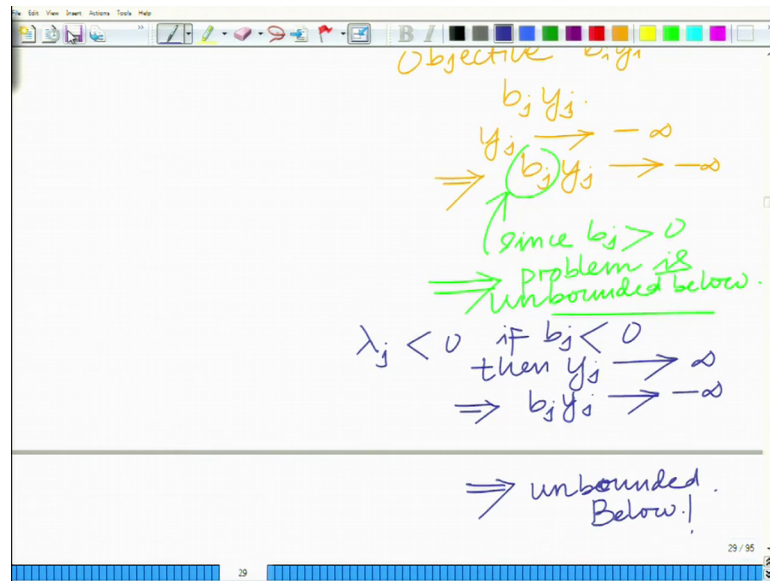 File Edit View Insert Actions Tools Help
B I
Objective bᵢyᵢ
bⱼ yⱼ.
yⱼ → − ∞
⇒ bⱼ yⱼ → −∞
since bⱼ > 0
⇒ problem is
unbounded below.
λⱼ < 0 if bⱼ < 0
then yⱼ → ∞
⇒ bⱼyⱼ → −∞
⇒ unbounded.
Below!
29 / 95
29